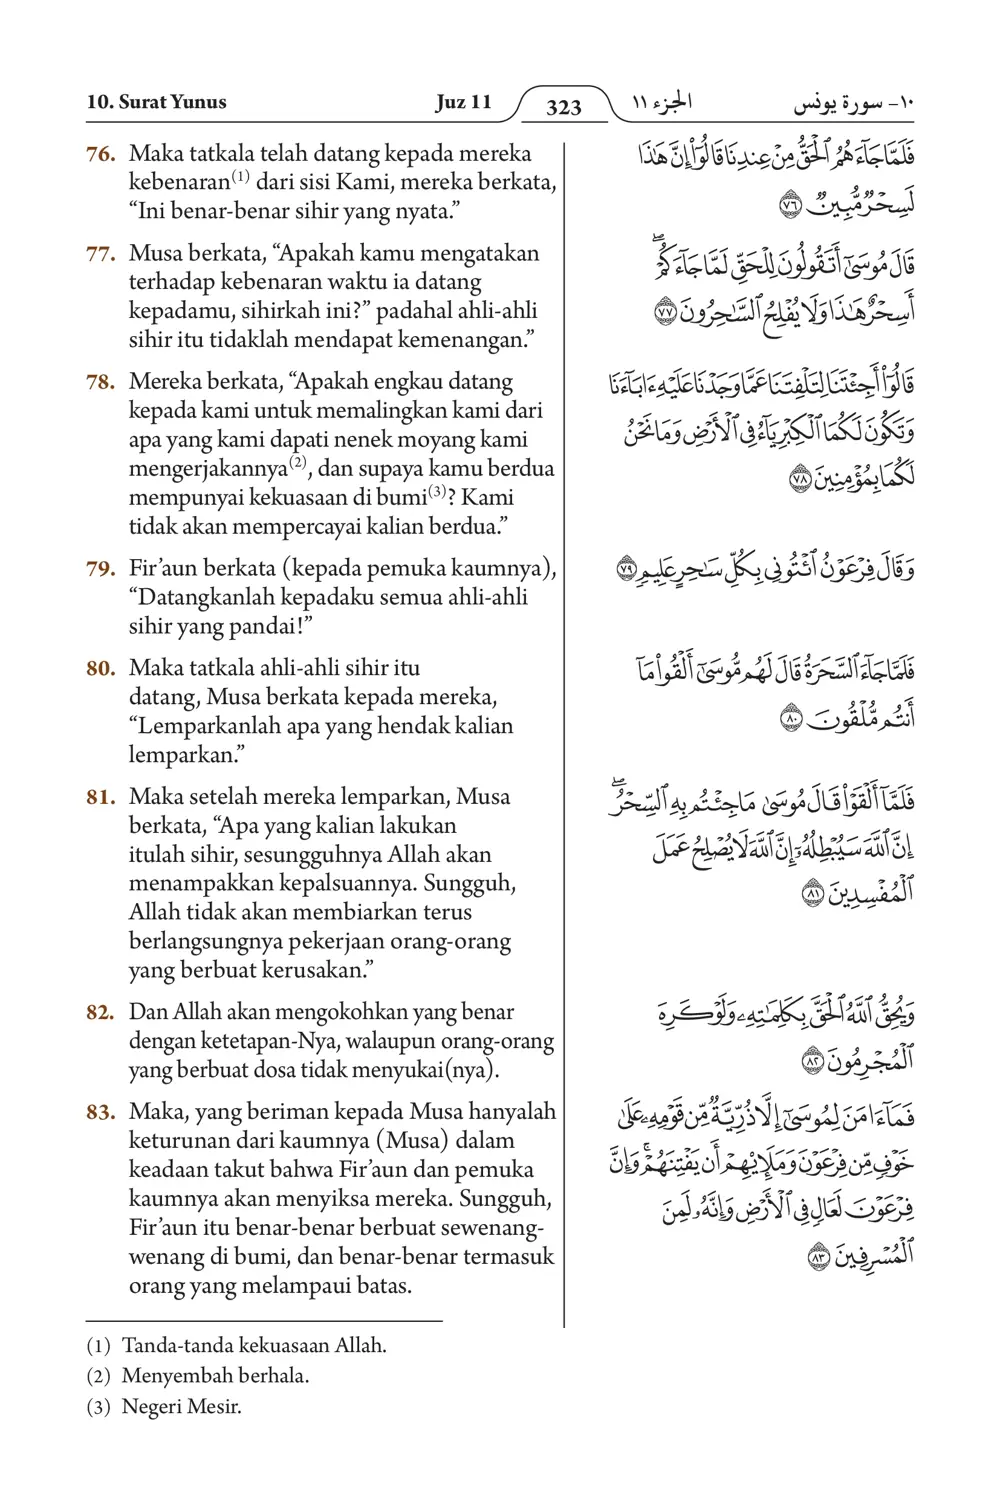 10. Surat Yunus Juz 11 323 الجزء ١١ ١٠- سورة يونس
76. Maka tatkala telah datang kepada mereka
kebenaran(1) dari sisi Kami, mereka berkata,
“Ini benar-benar sihir yang nyata.”
77. Musa berkata, “Apakah kamu mengatakan
terhadap kebenaran waktu ia datang
kepadamu, sihirkah ini?” padahal ahli-ahli
sihir itu tidaklah mendapat kemenangan.”
78. Mereka berkata, “Apakah engkau datang
kepada kami untuk memalingkan kami dari
apa yang kami dapati nenek moyang kami
mengerjakannya(2), dan supaya kamu berdua
mempunyai kekuasaan di bumi(3)? Kami
tidak akan mempercayai kalian berdua.”
79. Fir’aun berkata (kepada pemuka kaumnya),
“Datangkanlah kepadaku semua ahli-ahli
sihir yang pandai!”
80. Maka tatkala ahli-ahli sihir itu
datang, Musa berkata kepada mereka,
“Lemparkanlah apa yang hendak kalian
lemparkan.”
81. Maka setelah mereka lemparkan, Musa
berkata, “Apa yang kalian lakukan
itulah sihir, sesungguhnya Allah akan
menampakkan kepalsuannya. Sungguh,
Allah tidak akan membiarkan terus
berlangsungnya pekerjaan orang-orang
yang berbuat kerusakan.”
82. Dan Allah akan mengokohkan yang benar
dengan ketetapan-Nya, walaupun orang-orang
yang berbuat dosa tidak menyukai(nya).
83. Maka, yang beriman kepada Musa hanyalah
keturunan dari kaumnya (Musa) dalam
keadaan takut bahwa Fir’aun dan pemuka
kaumnya akan menyiksa mereka. Sungguh,
Fir’aun itu benar-benar berbuat sewenang-
wenang di bumi, dan benar-benar termasuk
orang yang melampaui batas.
فَلَمَّا جَآءَهُمُ ٱلْحَقُّ مِنْ عِندِنَا قَالُوٓا۟ إِنَّ هَـٰذَا
لَسِحْرٌ مُّبِينٌ ٧٦
قَالَ مُوسَىٰٓ أَتَقُولُونَ لِلْحَقِّ لَمَّا جَآءَكُمْ ۖ
أَسِحْرٌ هَـٰذَا وَلَا يُفْلِحُ ٱلسَّـٰحِرُونَ ٧٧
قَالُوٓا۟ أَجِئْتَنَا لِتَلْفِتَنَا عَمَّا وَجَدْنَا عَلَيْهِ ءَابَآءَنَا
وَتَكُونَ لَكُمَا ٱلْكِبْرِيَآءُ فِى ٱلْأَرْضِ وَمَا نَحْنُ
لَكُمَا بِمُؤْمِنِينَ ٧٨
وَقَالَ فِرْعَوْنُ ٱئْتُونِى بِكُلِّ سَـٰحِرٍ عَلِيمٍ ٧٩
فَلَمَّا جَآءَ ٱلسَّحَرَةُ قَالَ لَهُم مُّوسَىٰٓ أَلْقُوا۟ مَآ
أَنتُم مُّلْقُونَ ٨٠
فَلَمَّآ أَلْقَوْا۟ قَالَ مُوسَىٰ مَا جِئْتُم بِهِ ٱلسِّحْرُ ۖ
إِنَّ ٱللَّهَ سَيُبْطِلُهُۥٓ إِنَّ ٱللَّهَ لَا يُصْلِحُ عَمَلَ
ٱلْمُفْسِدِينَ ٨١
وَيُحِقُّ ٱللَّهُ ٱلْحَقَّ بِكَلِمَـٰتِهِۦ وَلَوْ كَرِهَ
ٱلْمُجْرِمُونَ ٨٢
فَمَآ ءَامَنَ لِمُوسَىٰٓ إِلَّا ذُرِّيَّةٌ مِّن قَوْمِهِۦ عَلَىٰ
خَوْفٍ مِّن فِرْعَوْنَ وَمَلَإِي۟هِمْ أَن يَفْتِنَهُمْ ۚ وَإِنَّ
فِرْعَوْنَ لَعَالٍ فِى ٱلْأَرْضِ وَإِنَّهُۥ لَمِنَ
ٱلْمُسْرِفِينَ ٨٣
(1) Tanda-tanda kekuasaan Allah.
(2) Menyembah berhala.
(3) Negeri Mesir.